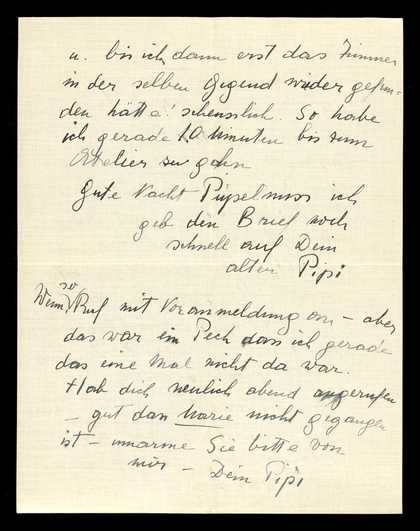 u. bis ich dann erst das Zimmer
in der selben Gegend wieder gefun-
den hätte! scheusslich. So habe
ich gerade 10 Minuten bis zum
Atelier zu gehn
Gute Nacht Pupsel muss ich
geb den Brief noch
schnell auf Dein
alter Pipi
so
Wenn Ruf mit Voranmeldung an – aber
das war ein Pech dass ich gerade
das eine Mal nicht da war.
Hab dich neulich abend angerufen
– gut dass Marie nicht gegangen
ist – umarme Sie bitte von
mir – Dein Pipi